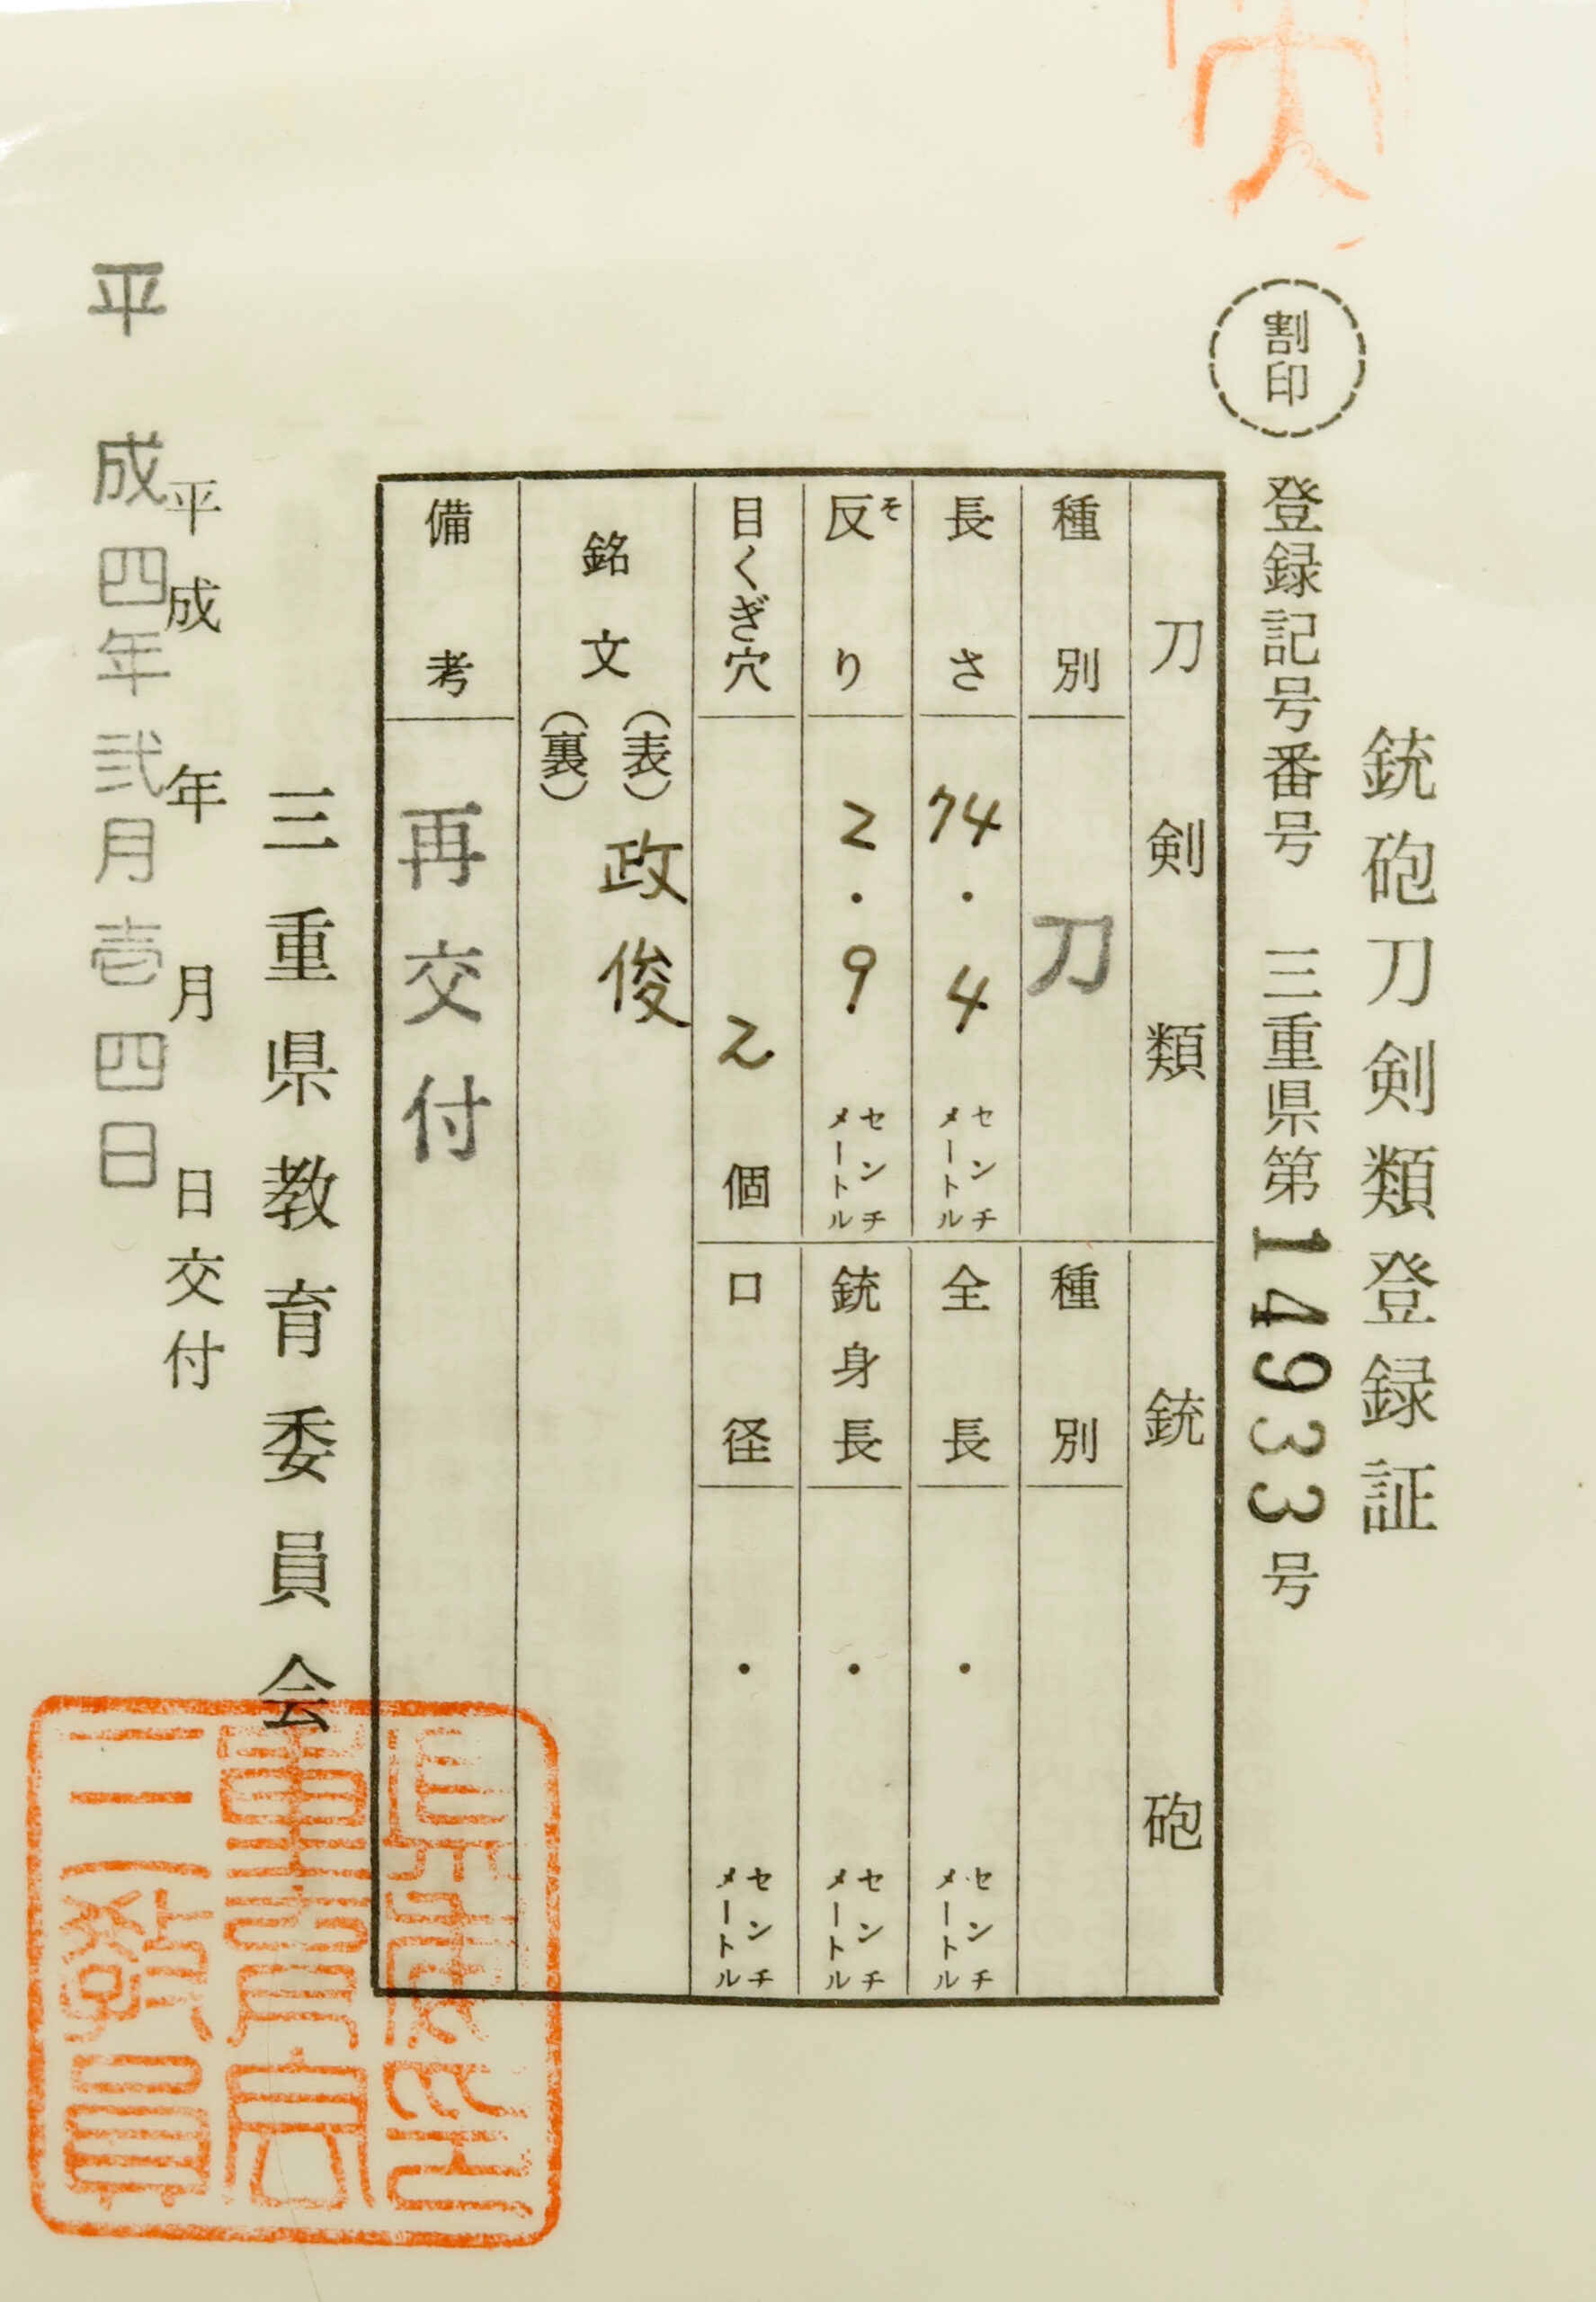 銃砲刀剣類登録証
割印
登録記号番号 三重県第14933号
刀剣類
銃砲
種別 刀
種別
長さ 74.4 センチメートル
全長 ・ センチメートル
反り そ 2.9 センチメートル
銃身長 ・ センチメートル
目くぎ穴 2個
口径 ・ センチメートル
銘文 (表) 政俊
(裏)
備考 再交付
三重県教育委員会
平成 年 月 日交付
平成四年弐月壱四日